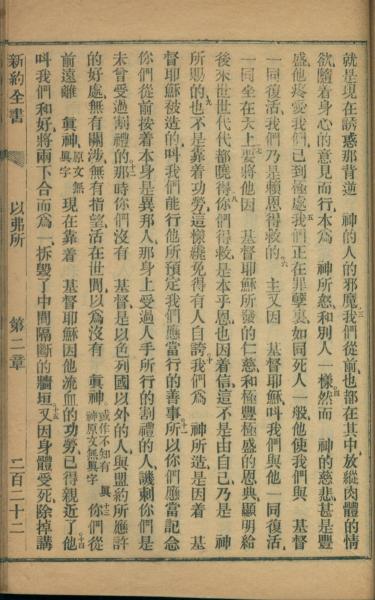 就是現在誘惑那背逆　神的人的邪魔我們從前也都在其中放縱肉體的情
欲隨着身心的意見而行本為　神所怒和別人一樣然而　神的慈悲甚是豐
盛他疼愛我們已到極處我們正在罪孽裏如同死人一般他使我們與　基督
一同復活我們乃是賴恩得救的　主又因　基督耶穌叫我們與他一同復活
一同坐在天上要將他因　基督耶穌所發的仁慈和極豐極盛的恩典顯明給
後來世世代代都曉得你們得救是本乎恩也因着信這不是由自己乃是　神
所賜的也不是靠着功勞這樣纔免得有人自誇我們為　神所造是因着　基
督耶穌被造的叫我們能行他所預定我們應當行的善事所以你們應當記念
你們從前按着本身是異邦人那身上受過人手所行的割禮的人譏刺你們是
未曾受過割禮的那時你們沒有　基督是以色列國以外的人與盟約所應許
的好處無有關涉無有指望活在世間以為沒有　眞神或作不知有眞神原文無眞字你們從
前遠離　眞神原文無眞字現在靠着　基督耶穌因他流血的功勞已得親近了他
叫我們和好將兩下合而為一拆毀了中間隔斷的牆垣又因身體受死除掉講
新約全書　以弗所　第二章　二百二十二